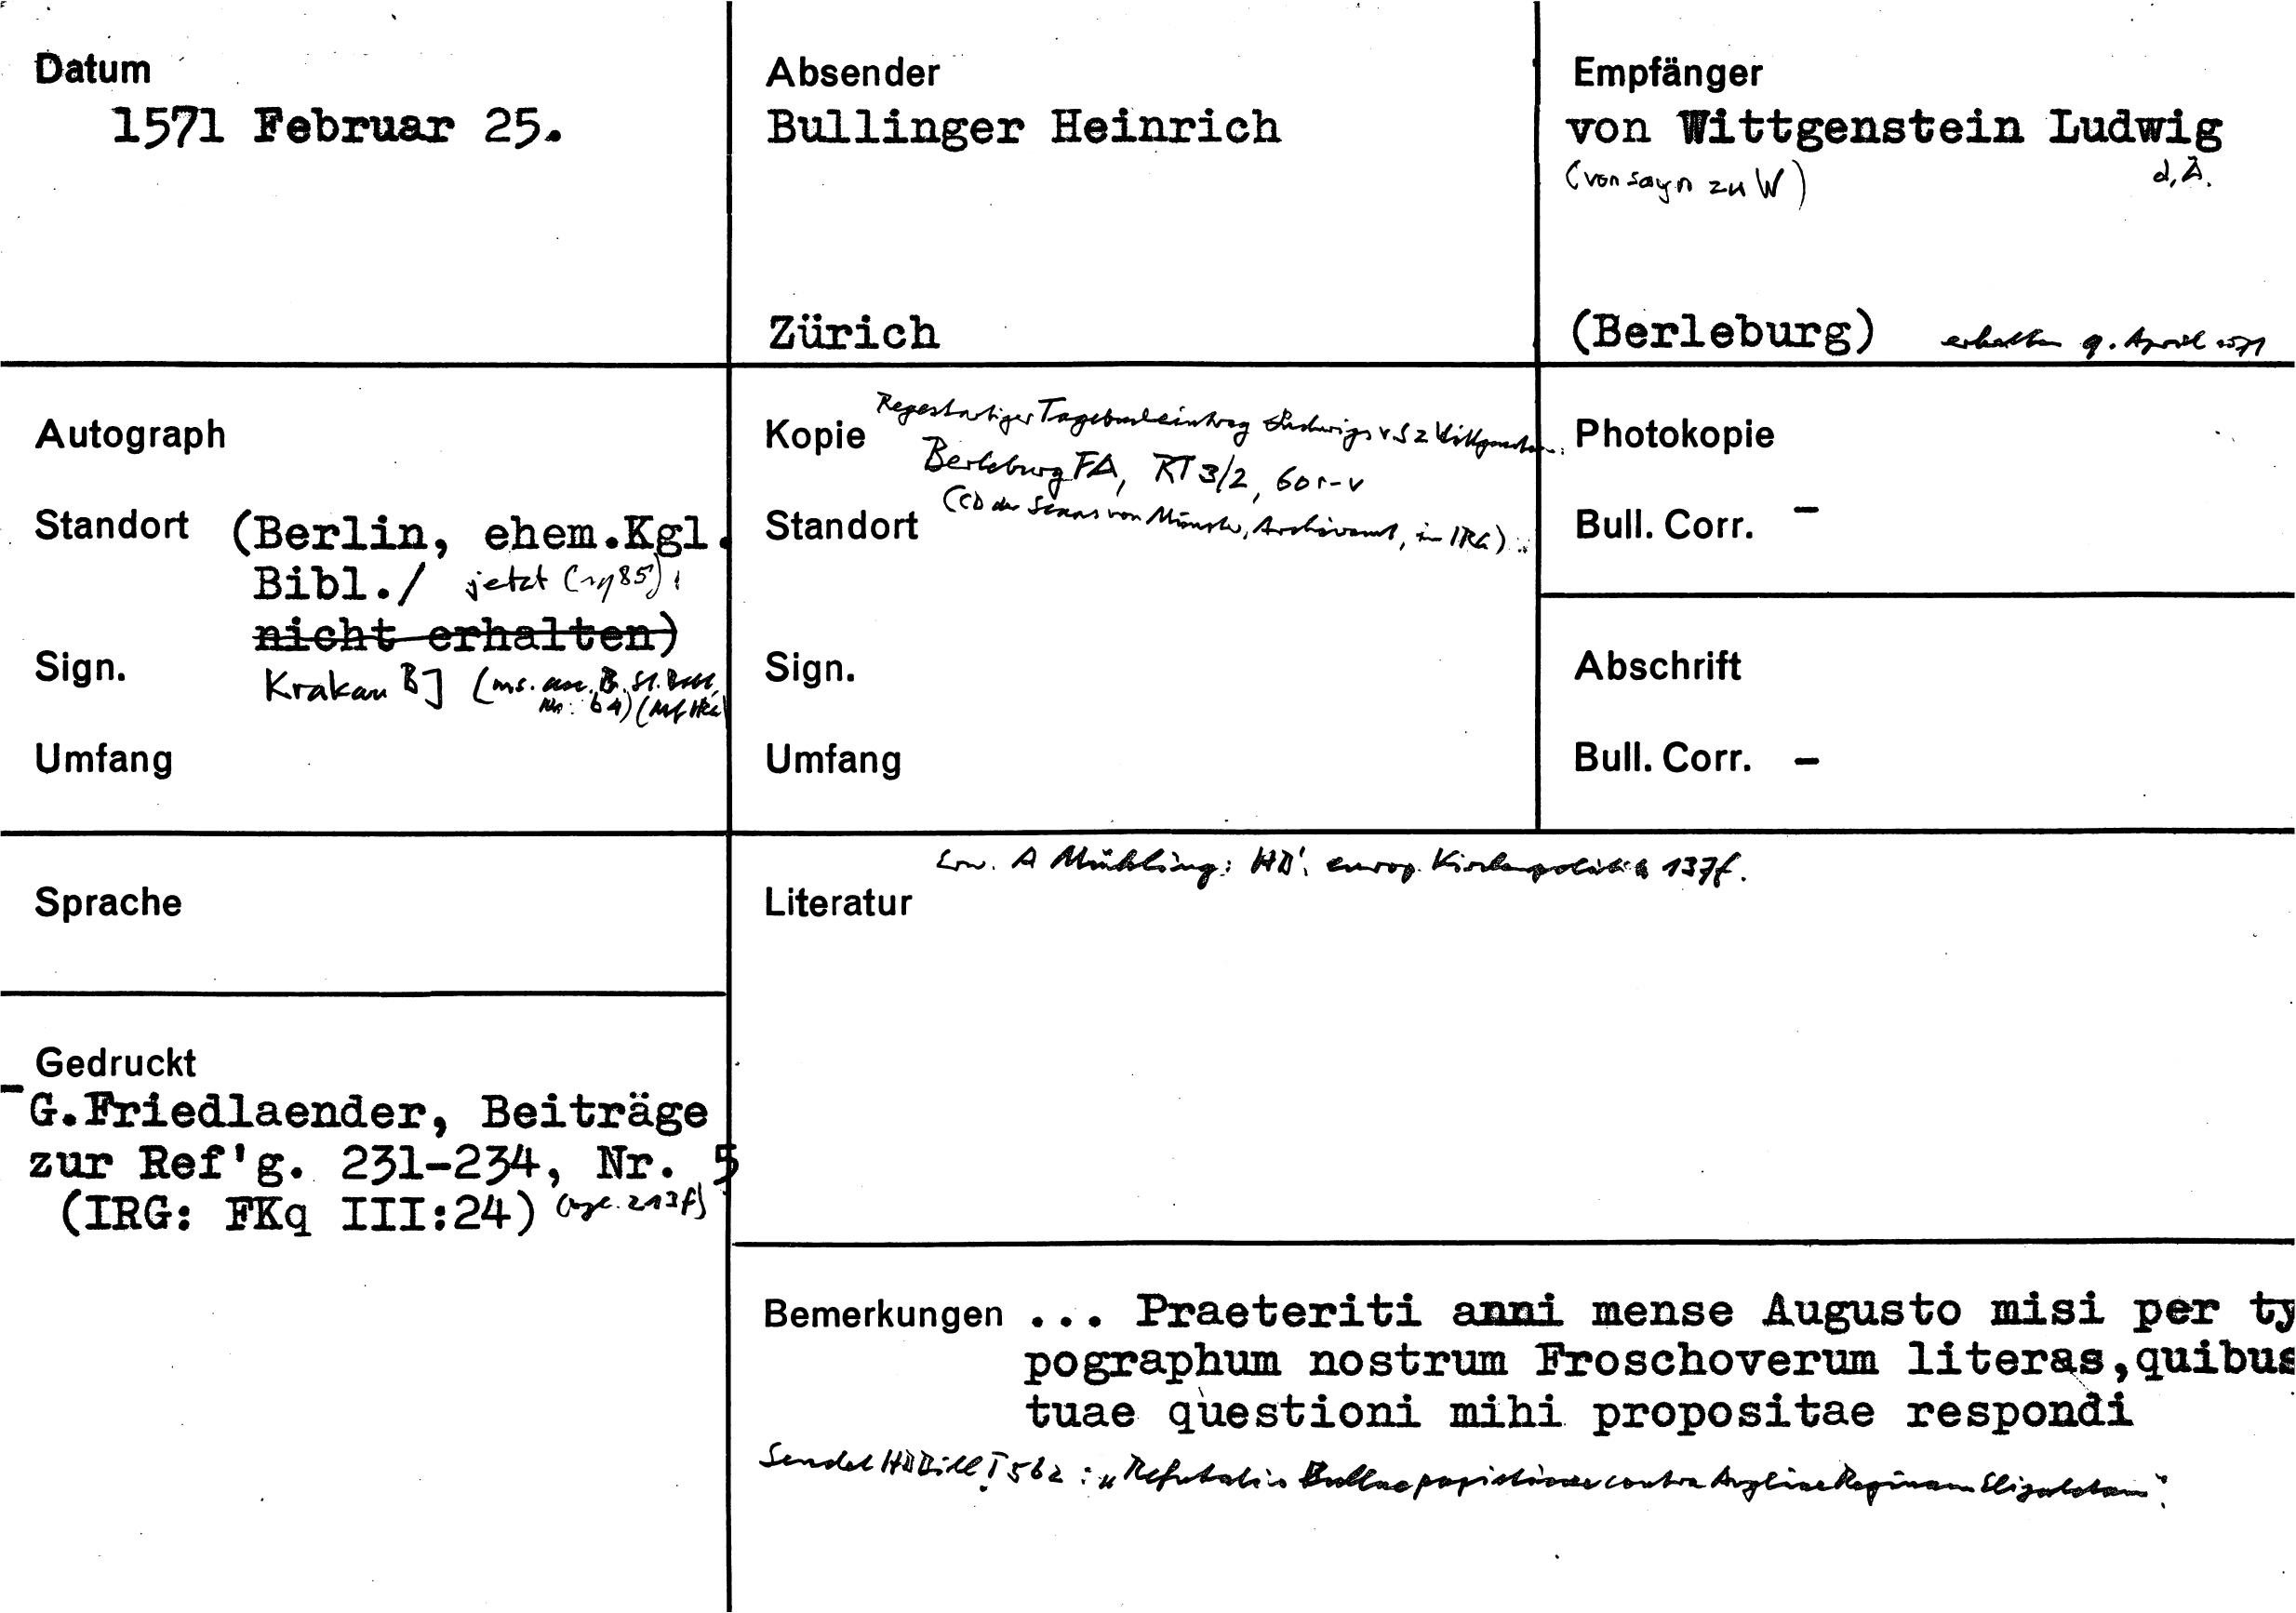 Datum
1571 Februar 25.
Absender
Bullinger Heinrich
Zürich
Empfänger
von Wittgenstein Ludwig
(von Sayn zu W) d. Ä.
(Berleburg) erhalten 9. April 1571
Autograph
Standort (Berlin, ehem.Kgl.
Bibl./ jetzt (1985):
nicht erhalten)
Sign. Krakau BJ
Umfang
Kopie Regestartiger Tagebucheintrag Ludwigs v S z Wittgenstein:
Berleburg FA, RT 3/2, 60r-v
Standort (CD des Scans von Münster, Archivamt, in IRG)
Sign.
Umfang
Photokopie
Bull. Corr. –
Abschrift
Bull. Corr. –
Sprache
Erw. A Mühling: HB's europ. Kirchenpolitik 137f.
Literatur
Gedruckt
G.Friedlaender, Beiträge
zur Ref'g. 231-234, Nr. 5
(IRG: FKq III:24) (vgl. 213f)
Bemerkungen ... Praeteriti anni mense Augusto misi per ty
pographum nostrum Froschoverum literas,quibus
tuae questioni mihi propositae respondi
Sendet HBBibl I 562: "Refutatio Bullae papisticae contra Angliae Reginam Elizabetham".